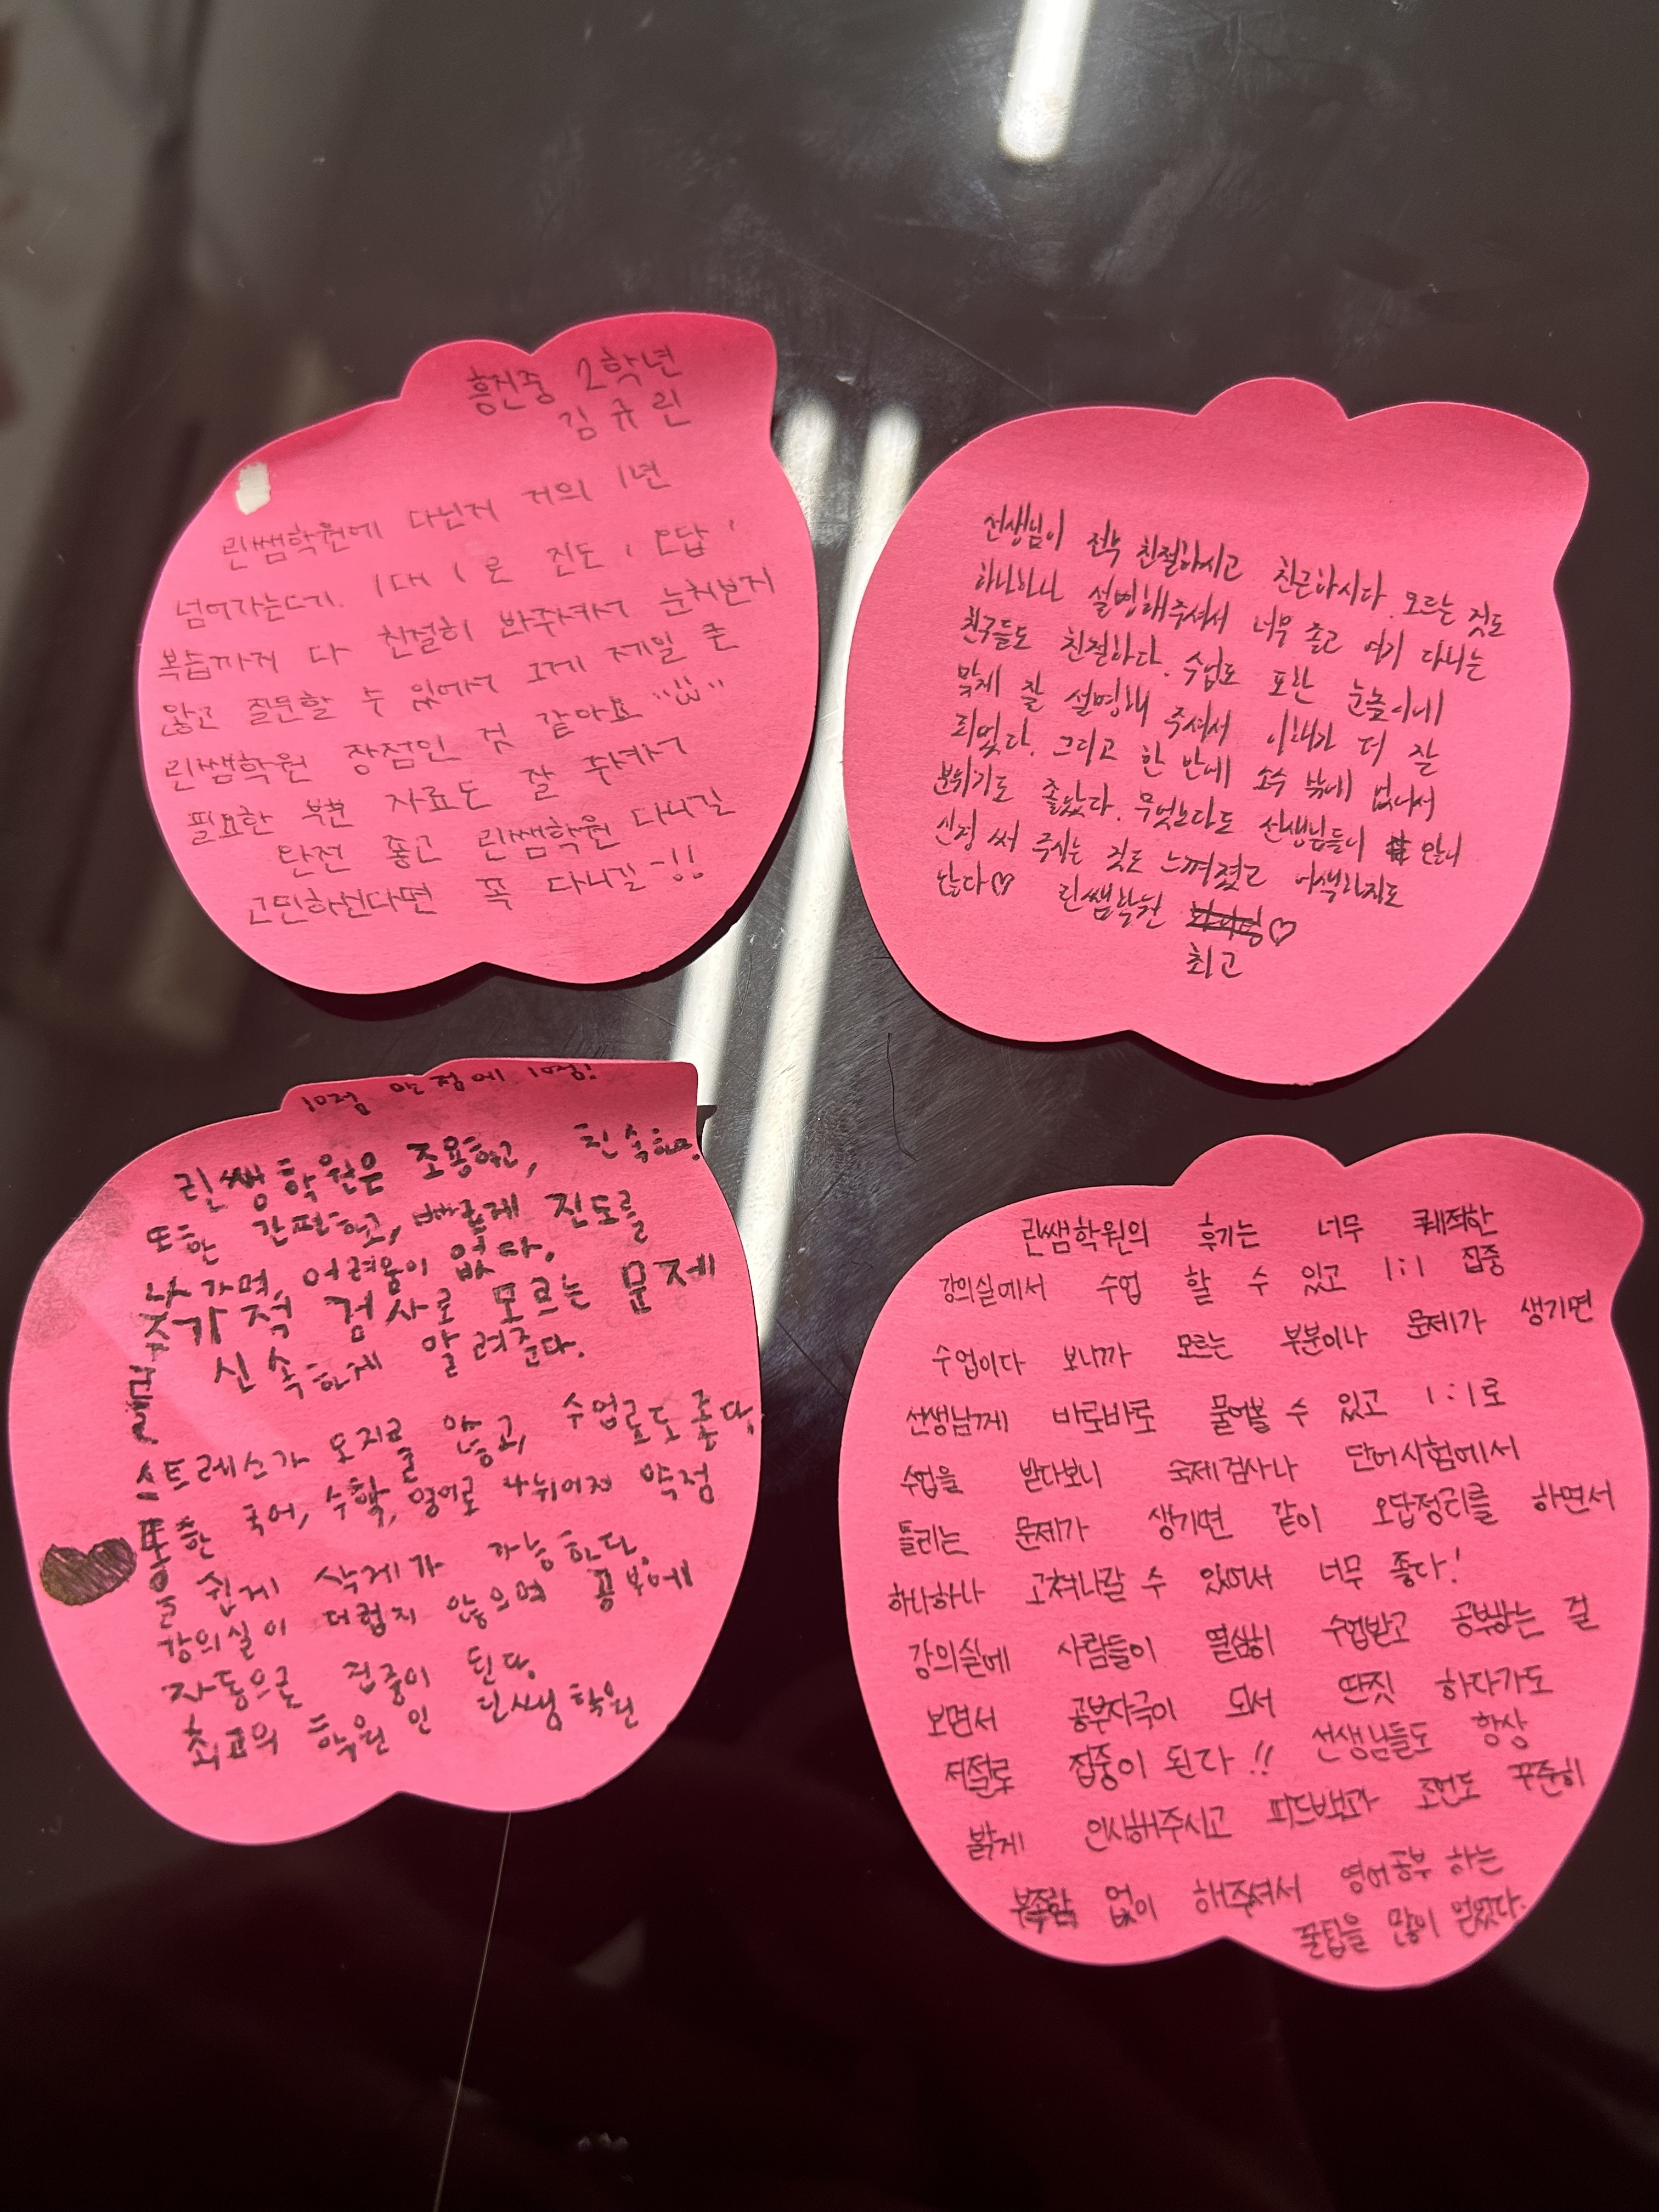 흥진중 2학년
김규린
린쌤학원에 다닌지 거의 1년
넘어가는데. 1대1로 진도, 오답,
복습까지 다 친절히 봐주셔서 눈치보지
않고 질문할 수 있어서 그게 제일 큰
린쌤학원 장점인 것 같아요
필요한 자료도 잘 주셔서
완전 좋고 린쌤학원 다니길
고민하신다면 꼭 다니길~!!
선생님이 전부 친절하시고 친근하시다. 모르는 것도
하나하나 설명해주셔서 너무 좋고 여기 다니는
친구들도 친절하다. 수업도 또한 눈높이에
맞게 잘 설명해 주셔서 이해가 더 잘
되었다. 그리고 한 반에 소수 밖에 없어서
분위기도 좋았다. 무엇보다도 선생님들이 많이
신경 써 주시는 것도 느껴졌고 어색하지도
않다♡ 린쌤학원 ♡
최고
10점 만점에 10점!
린쌤학원은 조용하고, 친숙하며.
또한 간편하고, 빠르게 진도를
나가며, 어려움이 없다.
추가적 검사로 모르는 문제
를 신속하게 알려준다.
스트레스가 오지를 않고, 수업로도 좋다.
또한 국어, 수학, 영어로 나뉘어져 약점
을 쉽게 삭제가 가능한다.
강의실이 더럽지 않으며 공부에
자동으로 집중이 된다.
최고의 학원인 린쌤학원
린쌤학원의 후기는 너무 쾌적한
강의실에서 수업 할 수 있고 1:1 집중
수업이다 보니까 모르는 부분이나 문제가 생기면
선생님께 바로바로 물어볼 수 있고 1:1로
수업을 받다보니 숙제검사나 단어시험에서
틀리는 문제가 생기면 같이 오답정리를 하면서
하나하나 고쳐나갈 수 있어서 너무 좋다!
강의실에 사람들이 열심히 수업받고 공부하는 걸
보면서 공부자극이 되서 딴짓 하다가도
저절로 집중이 된다!! 선생님들도 항상
밝게 인사해주시고 피드백과 조언도 꾸준히
부족함 없이 해주셔서 영어공부 하는
꿀팁을 많이 얻었다.